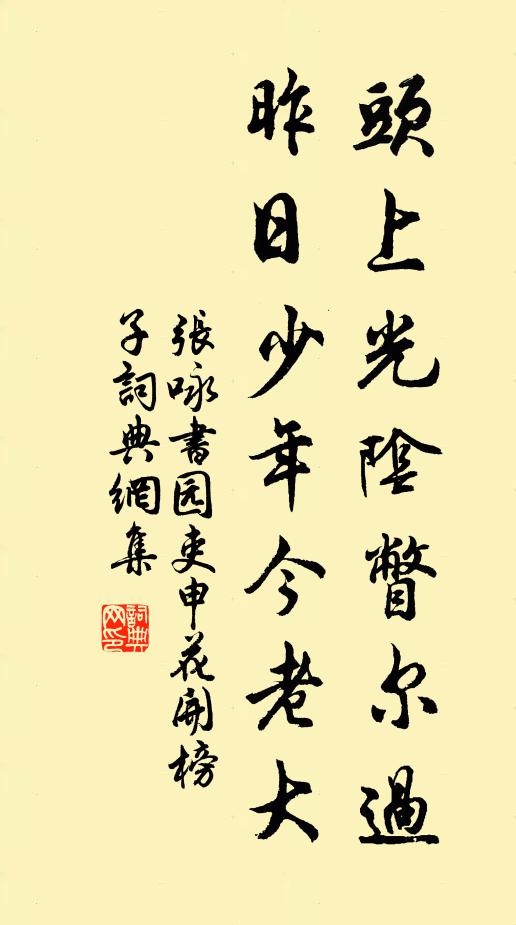 頭上光陰瞥尔過
昨日少年今老大
張咏書园吏申花開榜
子詞典網集
詞典网印